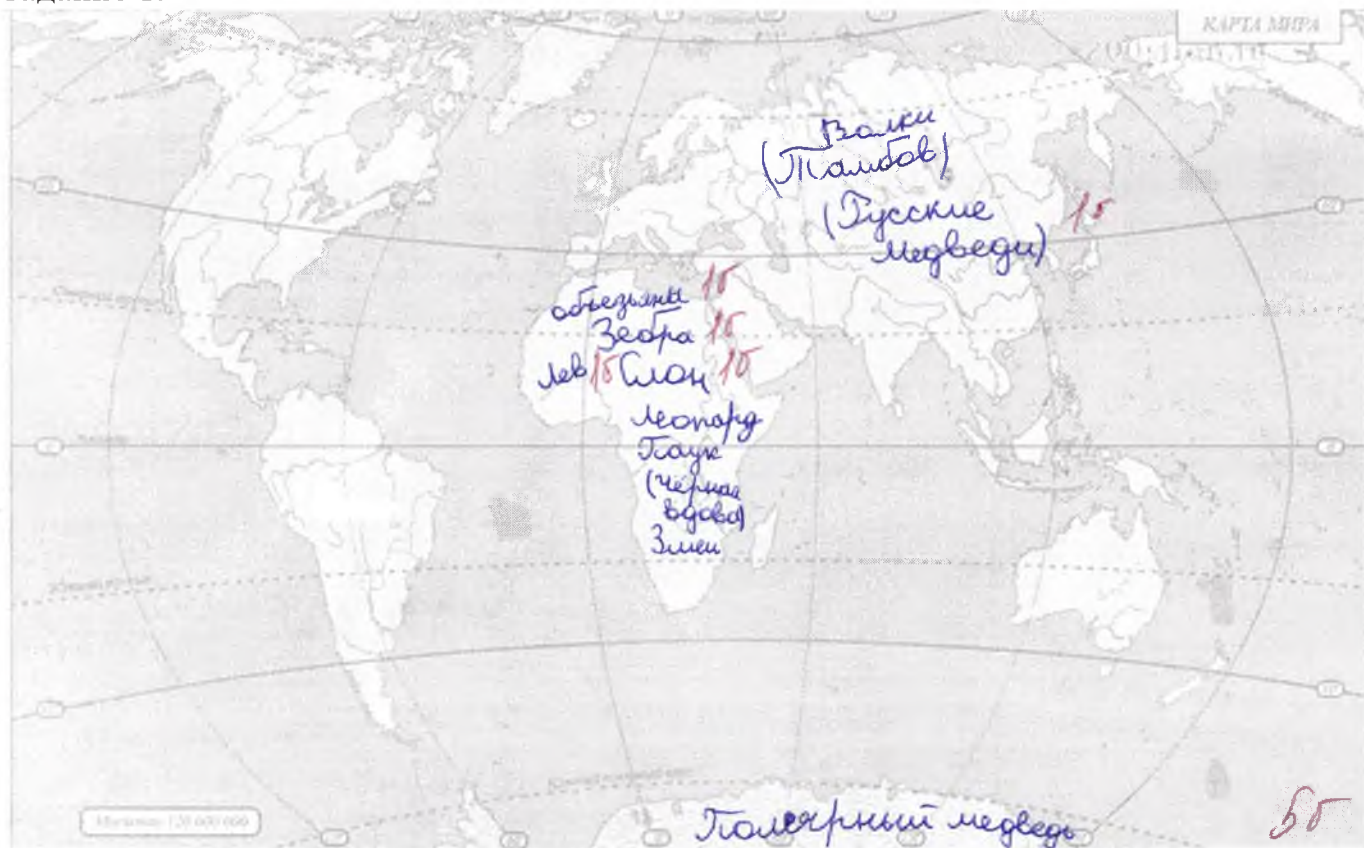 КАРТА МИРА
Волки
(Тамбов)
(Русские
медведи) 1б
объезьяны 1б
Зебра 1б
Лев 1б Слон 1б
леопард
Паук
(чёрная
вдова)
Змеи
Полярный медведь
5б